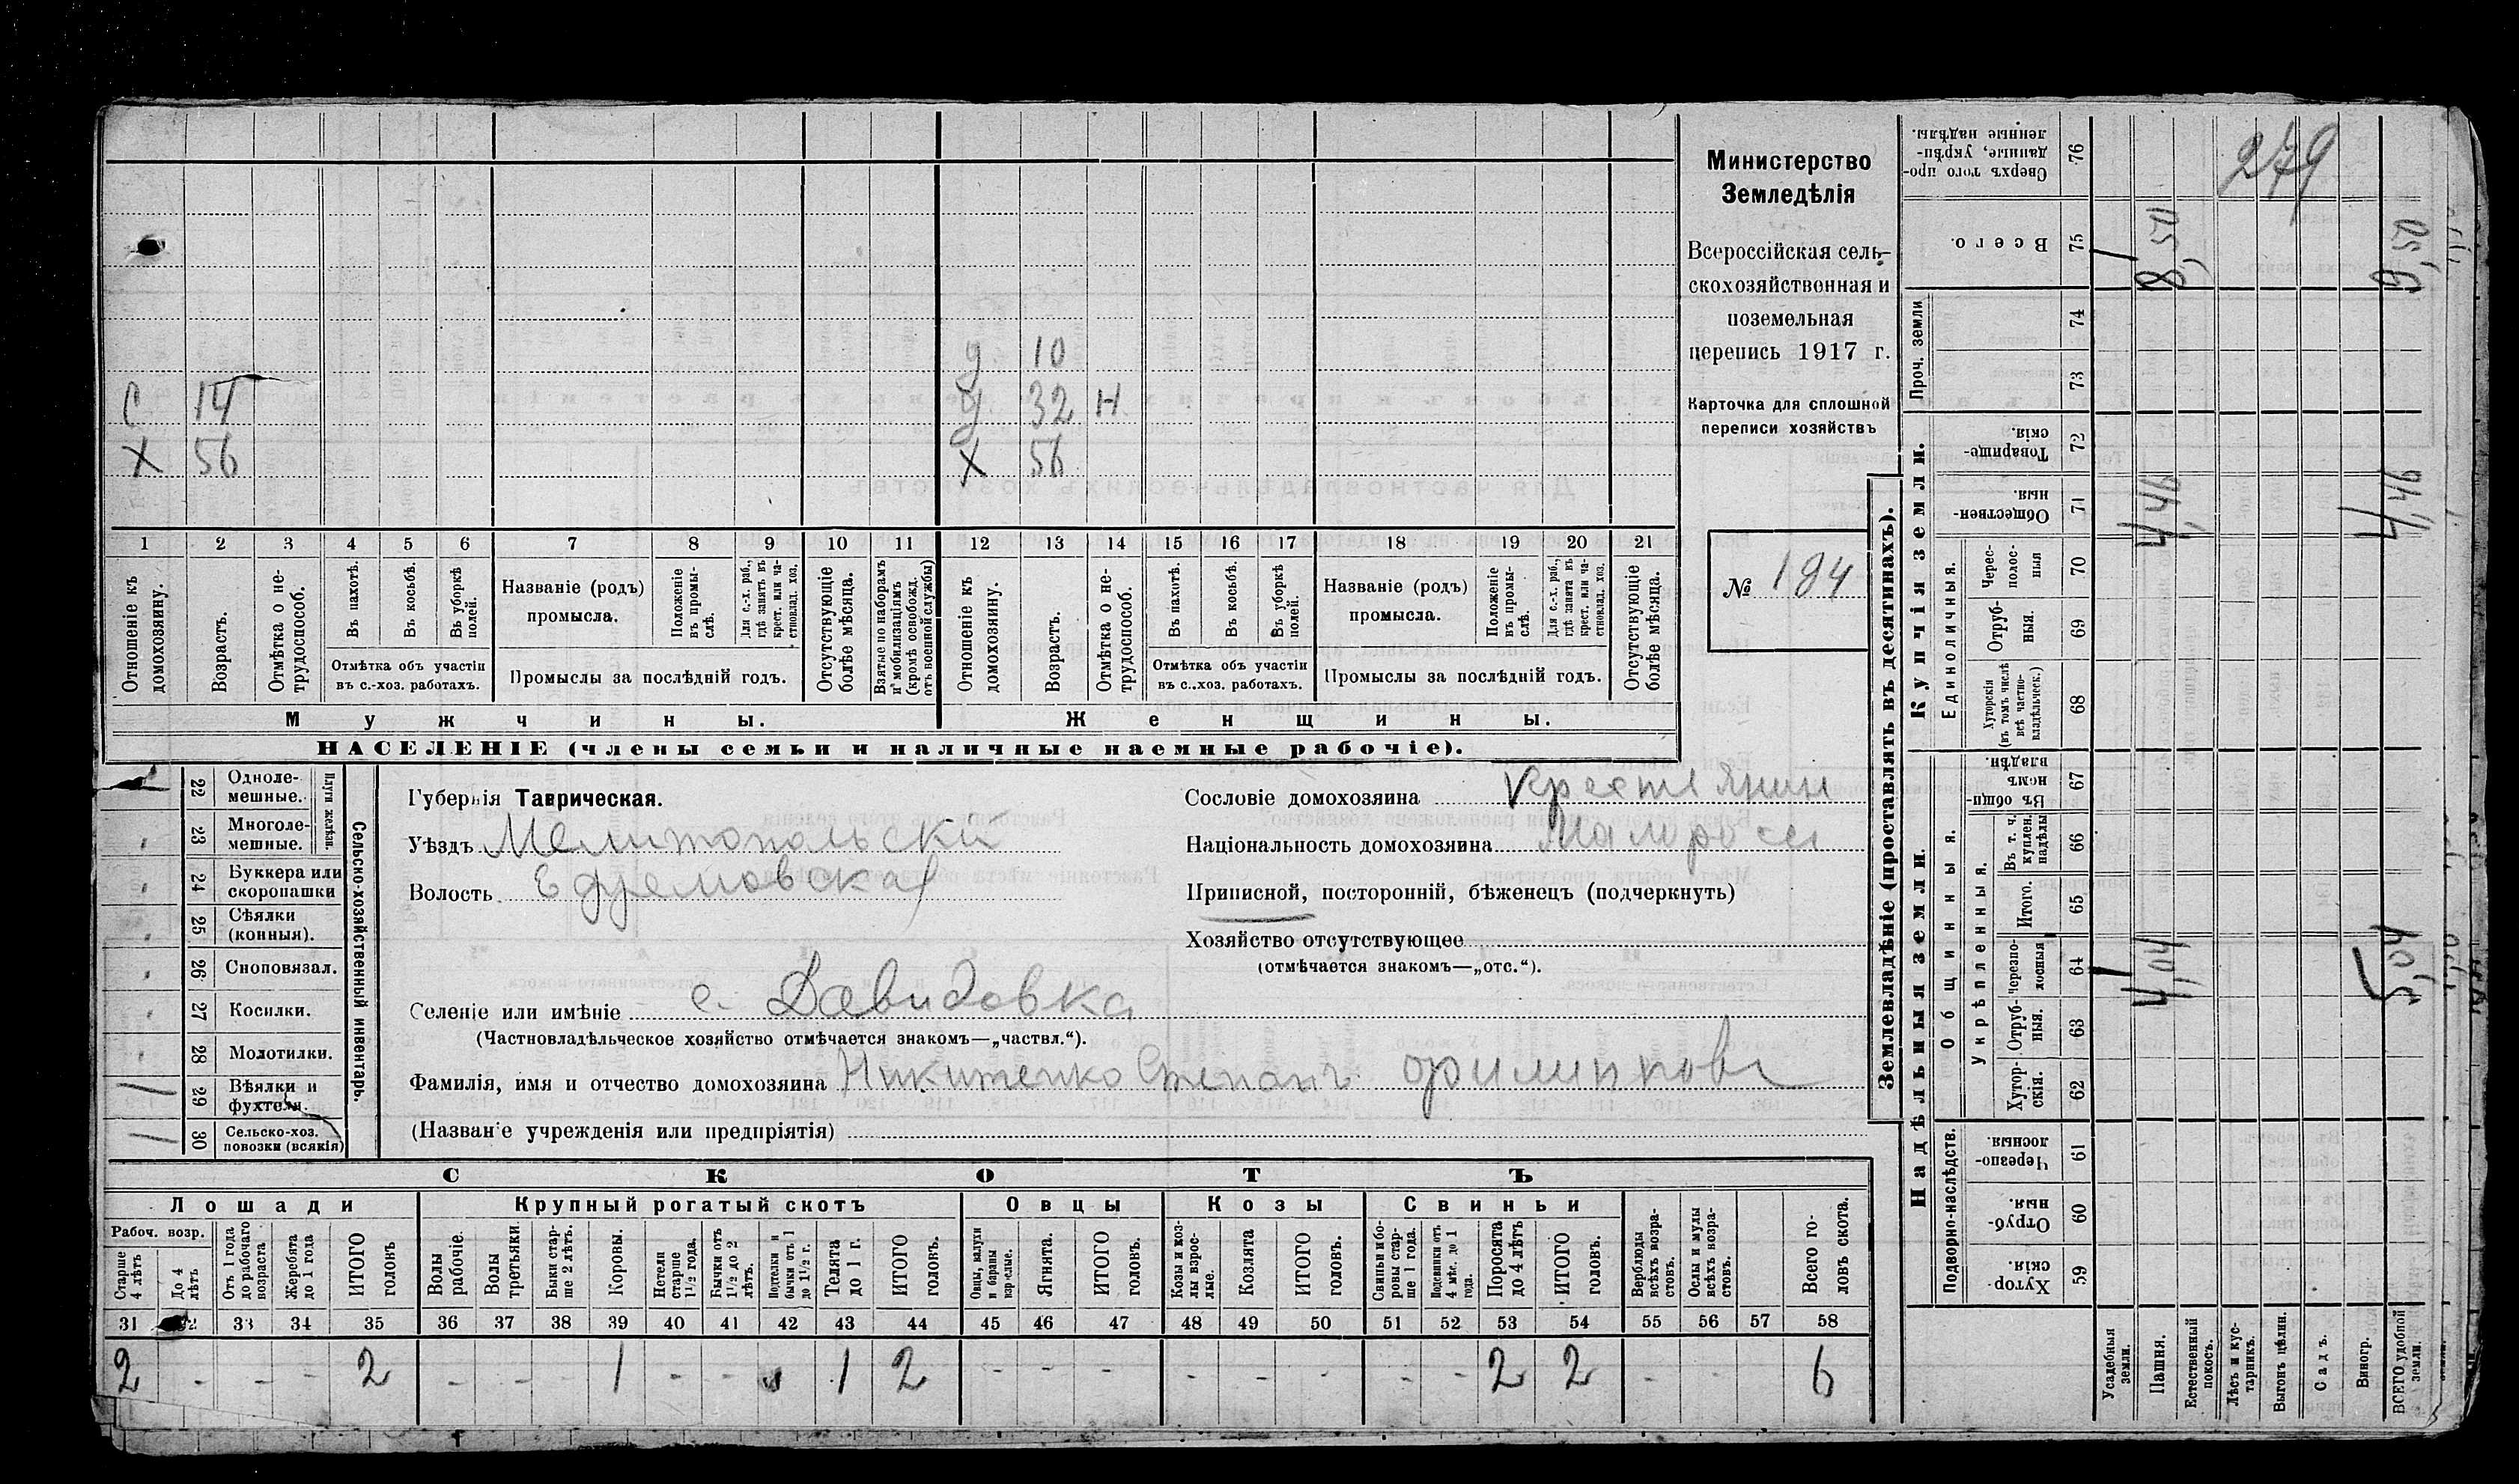 279
Министерство
Земледѣлія
Всероссійская сель-
скохозяйственная и
поземельная
перепись 1917 г.
Карточка для сплошной
переписи хозяйствъ
№ 184
д 10
С 14 д 32 Н
Х 56 Х 56
1 2 3 4 5 6 7 8 9 10 11 12 13 14 15 16 17 18 19 20 21
Отношеніе къ домохозяину.
Возрастъ.
Отмѣтка о не-трудоспособ.
Въ пахотѣ.
Въ косьбѣ.
Въ уборкѣ полей.
Отмѣтка объ участіи
въ с.-хоз. работахъ.
Названіе (родъ)
промысла.
Положеніе въ промы-слѣ.
Для с.-х. раб., гдѣ занятъ въ крест. или ча-стновлад. хоз.
Промыслы за послѣдній годъ.
Отсутствующіе болѣе мѣсяца.
Взятые по наборамъ и мобилизаціямъ (кромѣ освобожд. отъ военной службы)
Отношеніе къ домохозяину.
Возрастъ.
Отмѣтка о не-трудоспособ.
Въ пахотѣ.
Въ косьбѣ.
Въ уборкѣ полей.
Отмѣтка объ участіи
въ с.-хоз. работахъ.
Названіе (родъ)
промысла.
Положеніе въ промы-слѣ.
Для с.-х. раб., гдѣ занята въ крест. или ча-стновлад. хоз.
Промыслы за послѣдній годъ.
Отсутствующіе болѣе мѣсяца.
Мужчины. Женщины.
НАСЕЛЕНІЕ (члены семьи и наличные наемные рабочіе).
Сельско-хозяйственный инвентарь.
Плуги желѣзн.
22 Одноле-мешные.
23 Многоле-мешные.
24 Буккера или скоропашки
25 Сѣялки (конныя).
26 Сноповязал.
27 Косилки.
28 Молотилки.
29 Вѣялки и фухтели. /
30 Сельско-хоз. повозки (всякія) /
Губернія Таврическая.
Уѣздъ Мелитопольски
Волость Ефремовская
Сословіе домохозяина Крестьянин
Національность домохозяина Малоросс
Приписной, посторонній, бѣженецъ (подчеркнуть)
Хозяйство отсутствующее
(отмѣчается знакомъ—„отс.“).
Селеніе или имѣніе с. Давидовка
(Частновладѣльческое хозяйство отмѣчается знакомъ—„частвл.“).
Фамилія, имя и отчество домохозяина Никитенко Степанъ Филиппов
(Названіе учрежденія или предпріятія)
СКОТЪ
Лошади Крупный рогатый скотъ Овцы Козы Свиньи
Рабоч. возр.
Старше 4 лѣтъ
До 4 лѣтъ
Отъ 1 года до рабочаго возраста
Жеребята до 1 года
ИТОГО головъ
Волы рабочіе.
Волы третьяки
Быки стар-ше 2 лѣтъ.
Коровы.
Нетели старше 1½ года.
Бычки отъ 1½ до 2 лѣтъ.
Подтелки и бычки отъ 1 до 1½ г.
Телята до 1 г.
ИТОГО головъ.
Овцы, валухи и бараны взрослые.
Ягнята.
ИТОГО головъ.
Козы и коз-лы взрос-лые.
Козлята
ИТОГО головъ.
Свиньи и бо-ровы стар-ше 1 года.
Подсвинки отъ 4 мѣс. до 1 года.
Поросята до 4 лѣтъ
ИТОГО головъ.
Верблюды всѣхъ возра-стовъ.
Ослы и мулы всѣхъ возра-стовъ.
Всего го-ловъ скота.
31 32 33 34 35 36 37 38 39 40 41 42 43 44 45 46 47 48 49 50 51 52 53 54 55 56 57 58
2 - - - 2 - - - 1 - - 1 2 - - - - - - - - 2 2 - - 6
Землевладѣніе (проставлять въ десятинахъ).
Надѣльныя земли.
Купчія земли.
Проч. земли
Подворно-наслѣдств.
Общинныя.
Укрѣпленныя.
Единоличныя.
Сверхъ того про-данные, укрѣп-ленные надѣлы. 76
Всего. 75 8,50
74
73
Товарище-скія. 72
Обществен-ныя. 71 4,46 4,46
Черес-полос-ныя 70
Отруб-ныя. 69
Хуторскія (въ томъ числѣ всѣ частно-владѣльческ.) 68
Въ общи-номъ владѣн. 67
Въ т. ч. куплен. надѣлы 66
Итого. 65
Черезпо-лосныя 64 4,04
Отруб-ныя. 63
Хутор-скія. 62
Черезпо-лосныя. 61
Отруб-ныя. 60
Хутор-скія. 59
Усадебныя земли.
Пашня.
Естественный покосъ.
Лѣсъ и кус-тарникъ.
Выгонъ цѣлин.
Садъ.
Виногр.
ВСЕГО удобной земли.